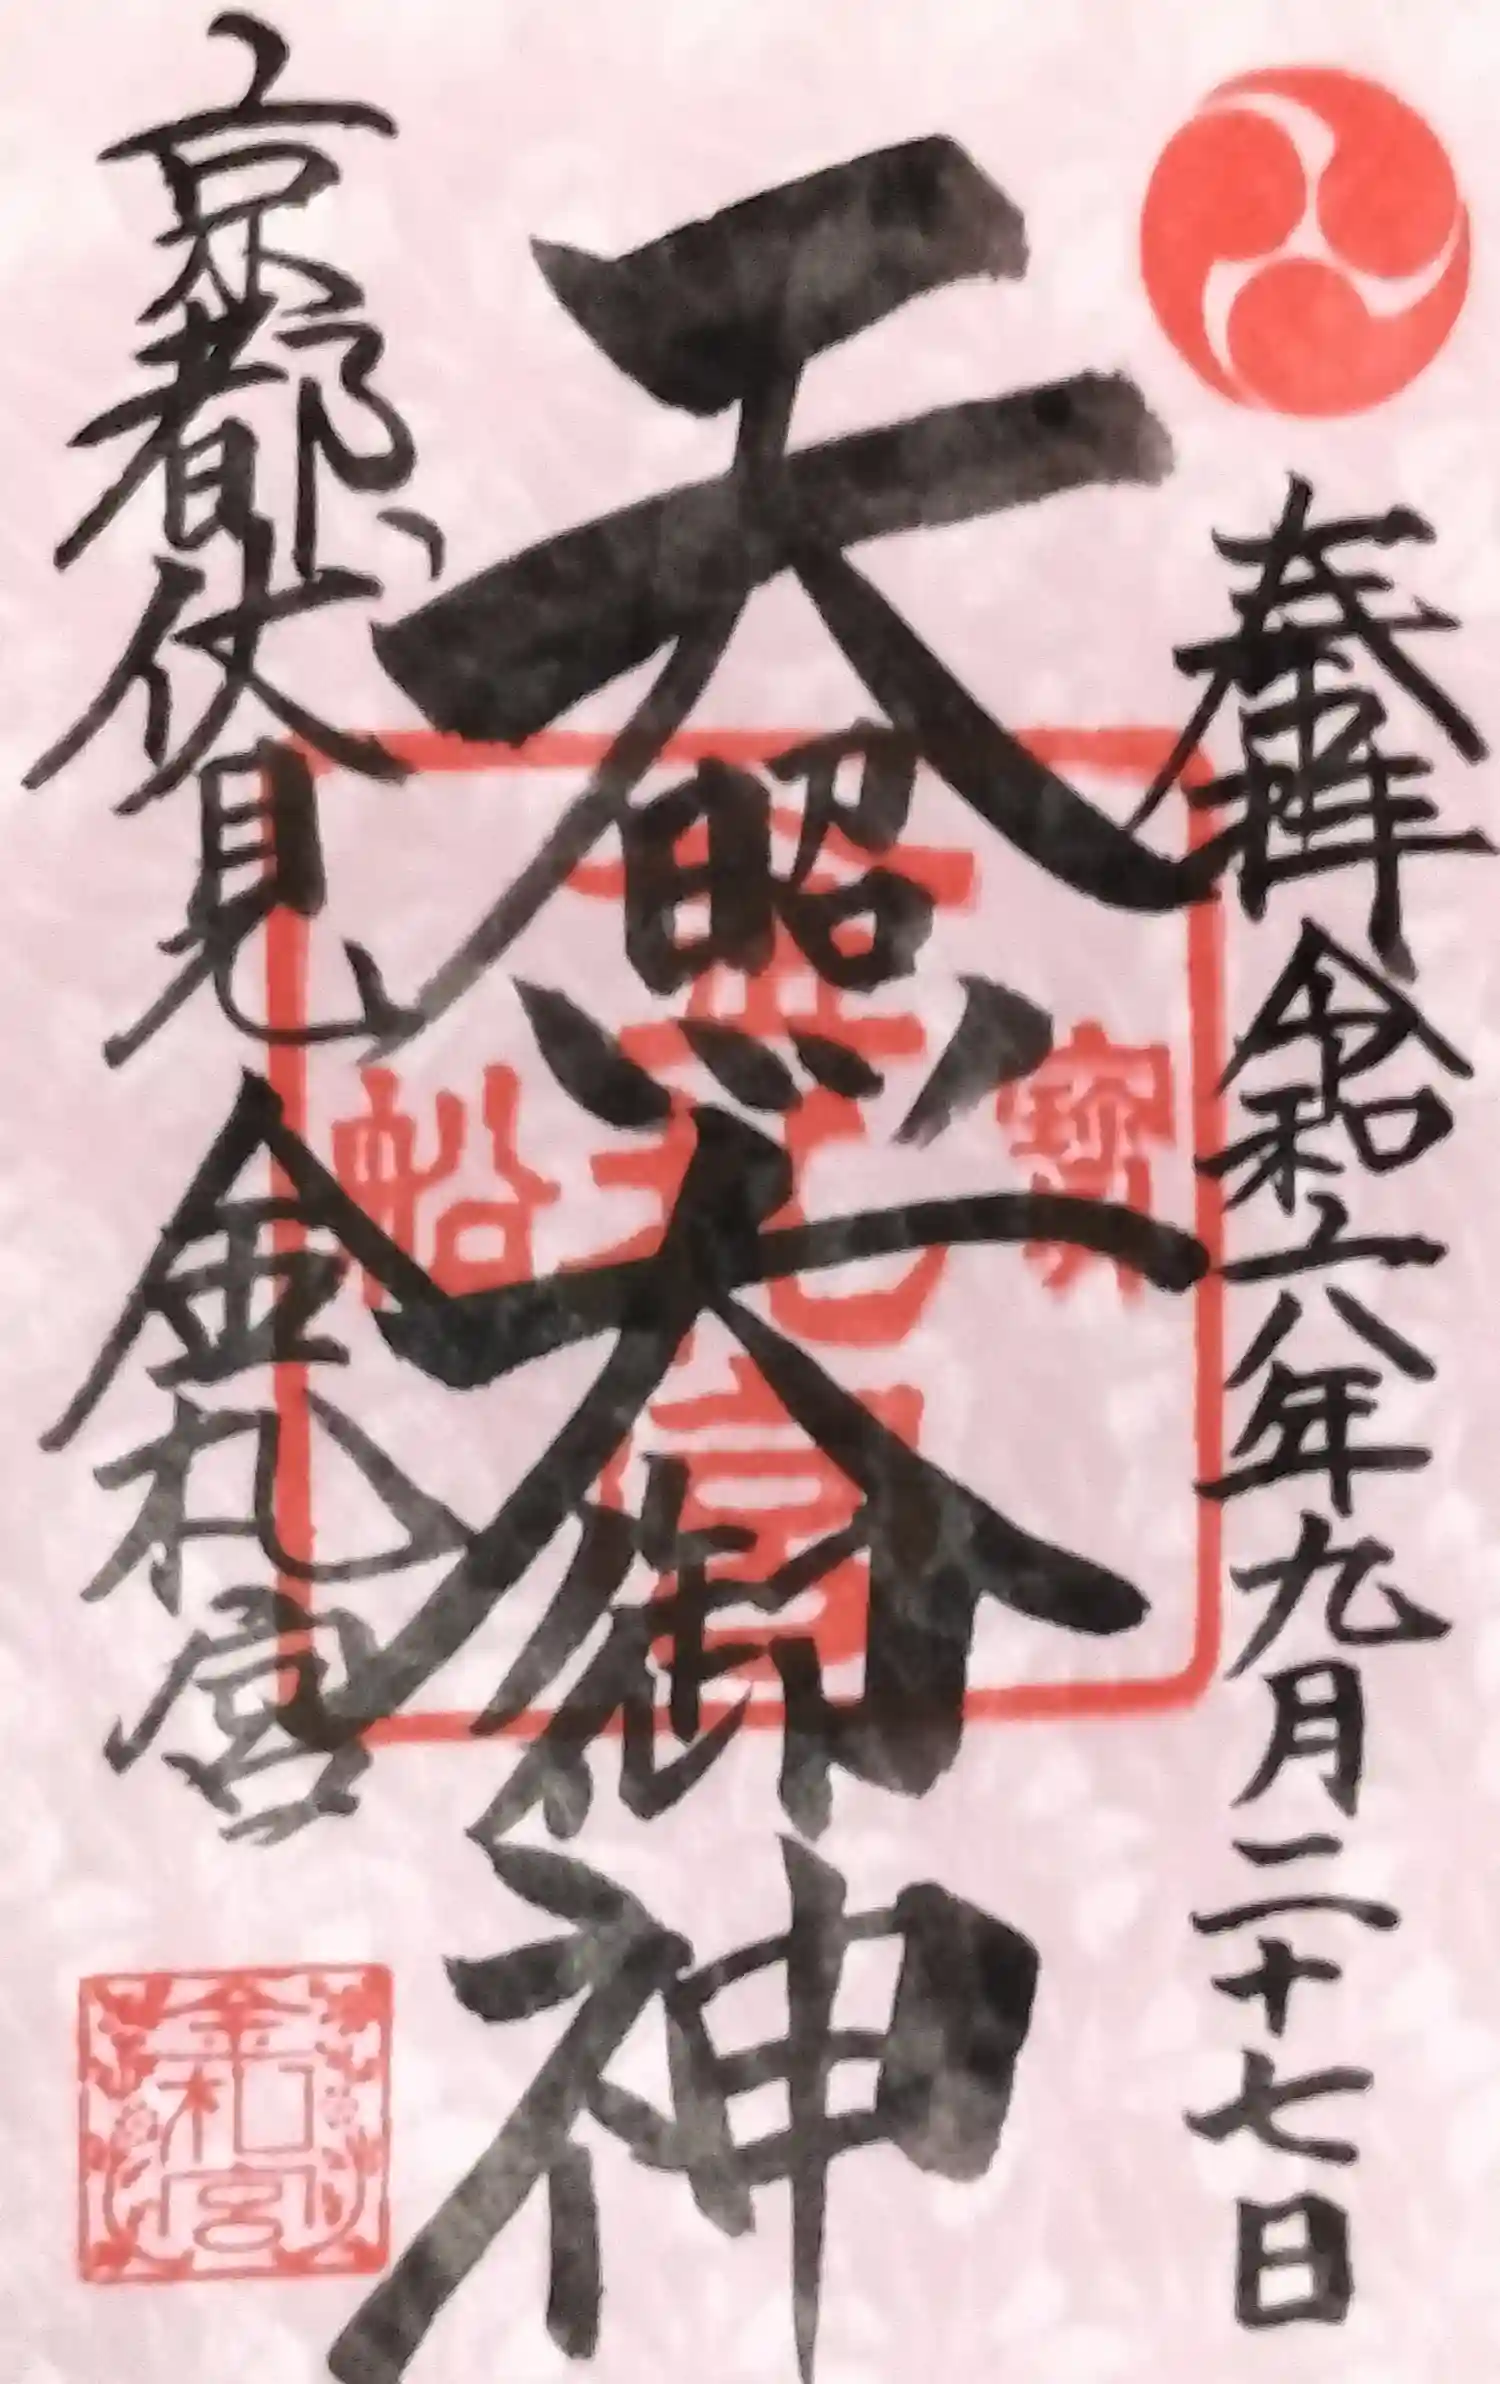 奉拝 令和六年九月二十七日
天照大御神
金札宮
京都伏見 金札宮
金札宮